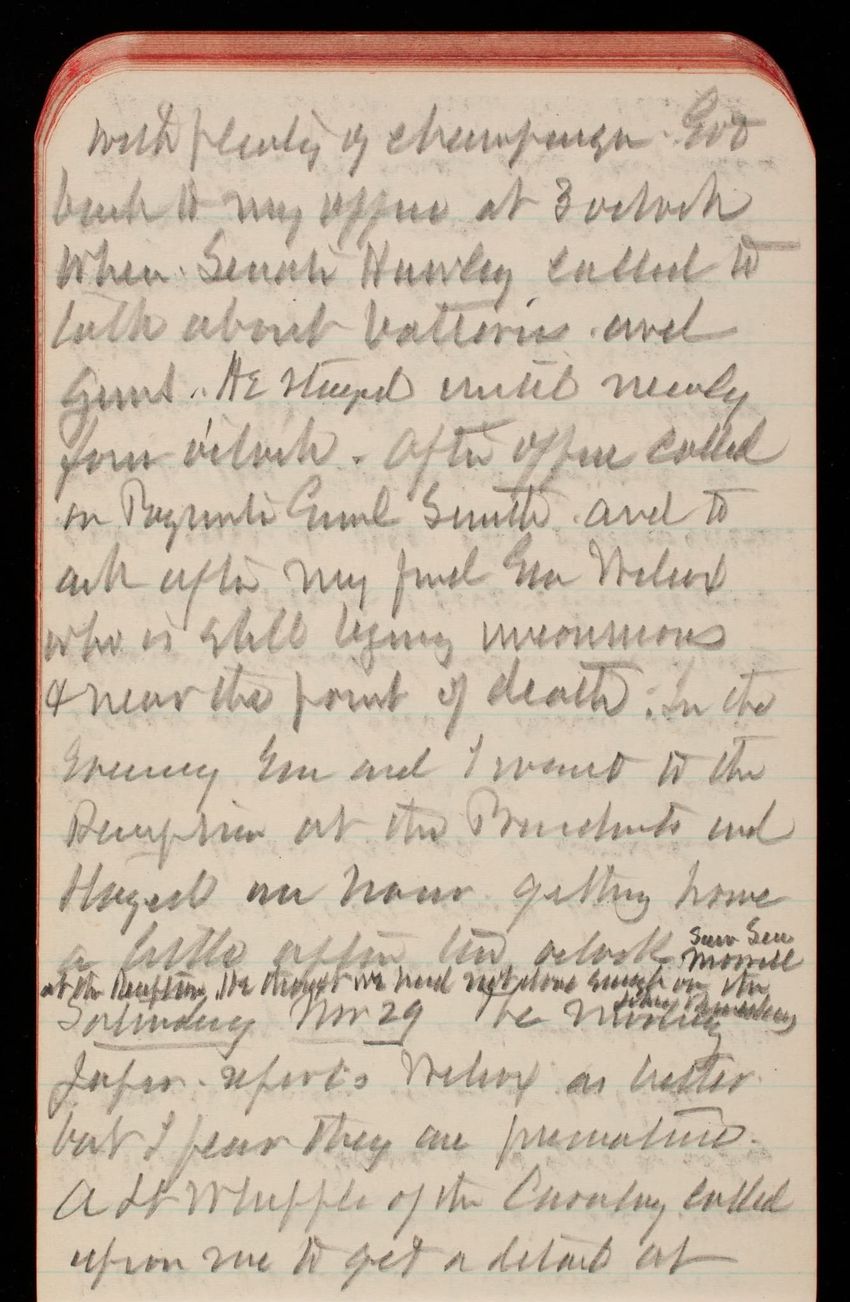 with plenty of champagne. Got
back to my office at 3 oclock
when Senator Hawley called to
talk about batteries and
guns. He stayed until nearly
four o'clock. After office called
on Smith and to
ask after my friend Gen Wilcox
who is still lying unconscious
& near the point of death. In the
Evening Em and I went to the
Reception at the Presidents and
stayed an hour getting home
a little after ten oclock Saw Sen
Morrill
at the Reception. He thought we had not done enough on the
Saturday Nov 29 The Morning
Paper reports Wilcox as better
but I fear they are premature.
A Lt Whipple of the Cavalry called
upon me to get a detail at